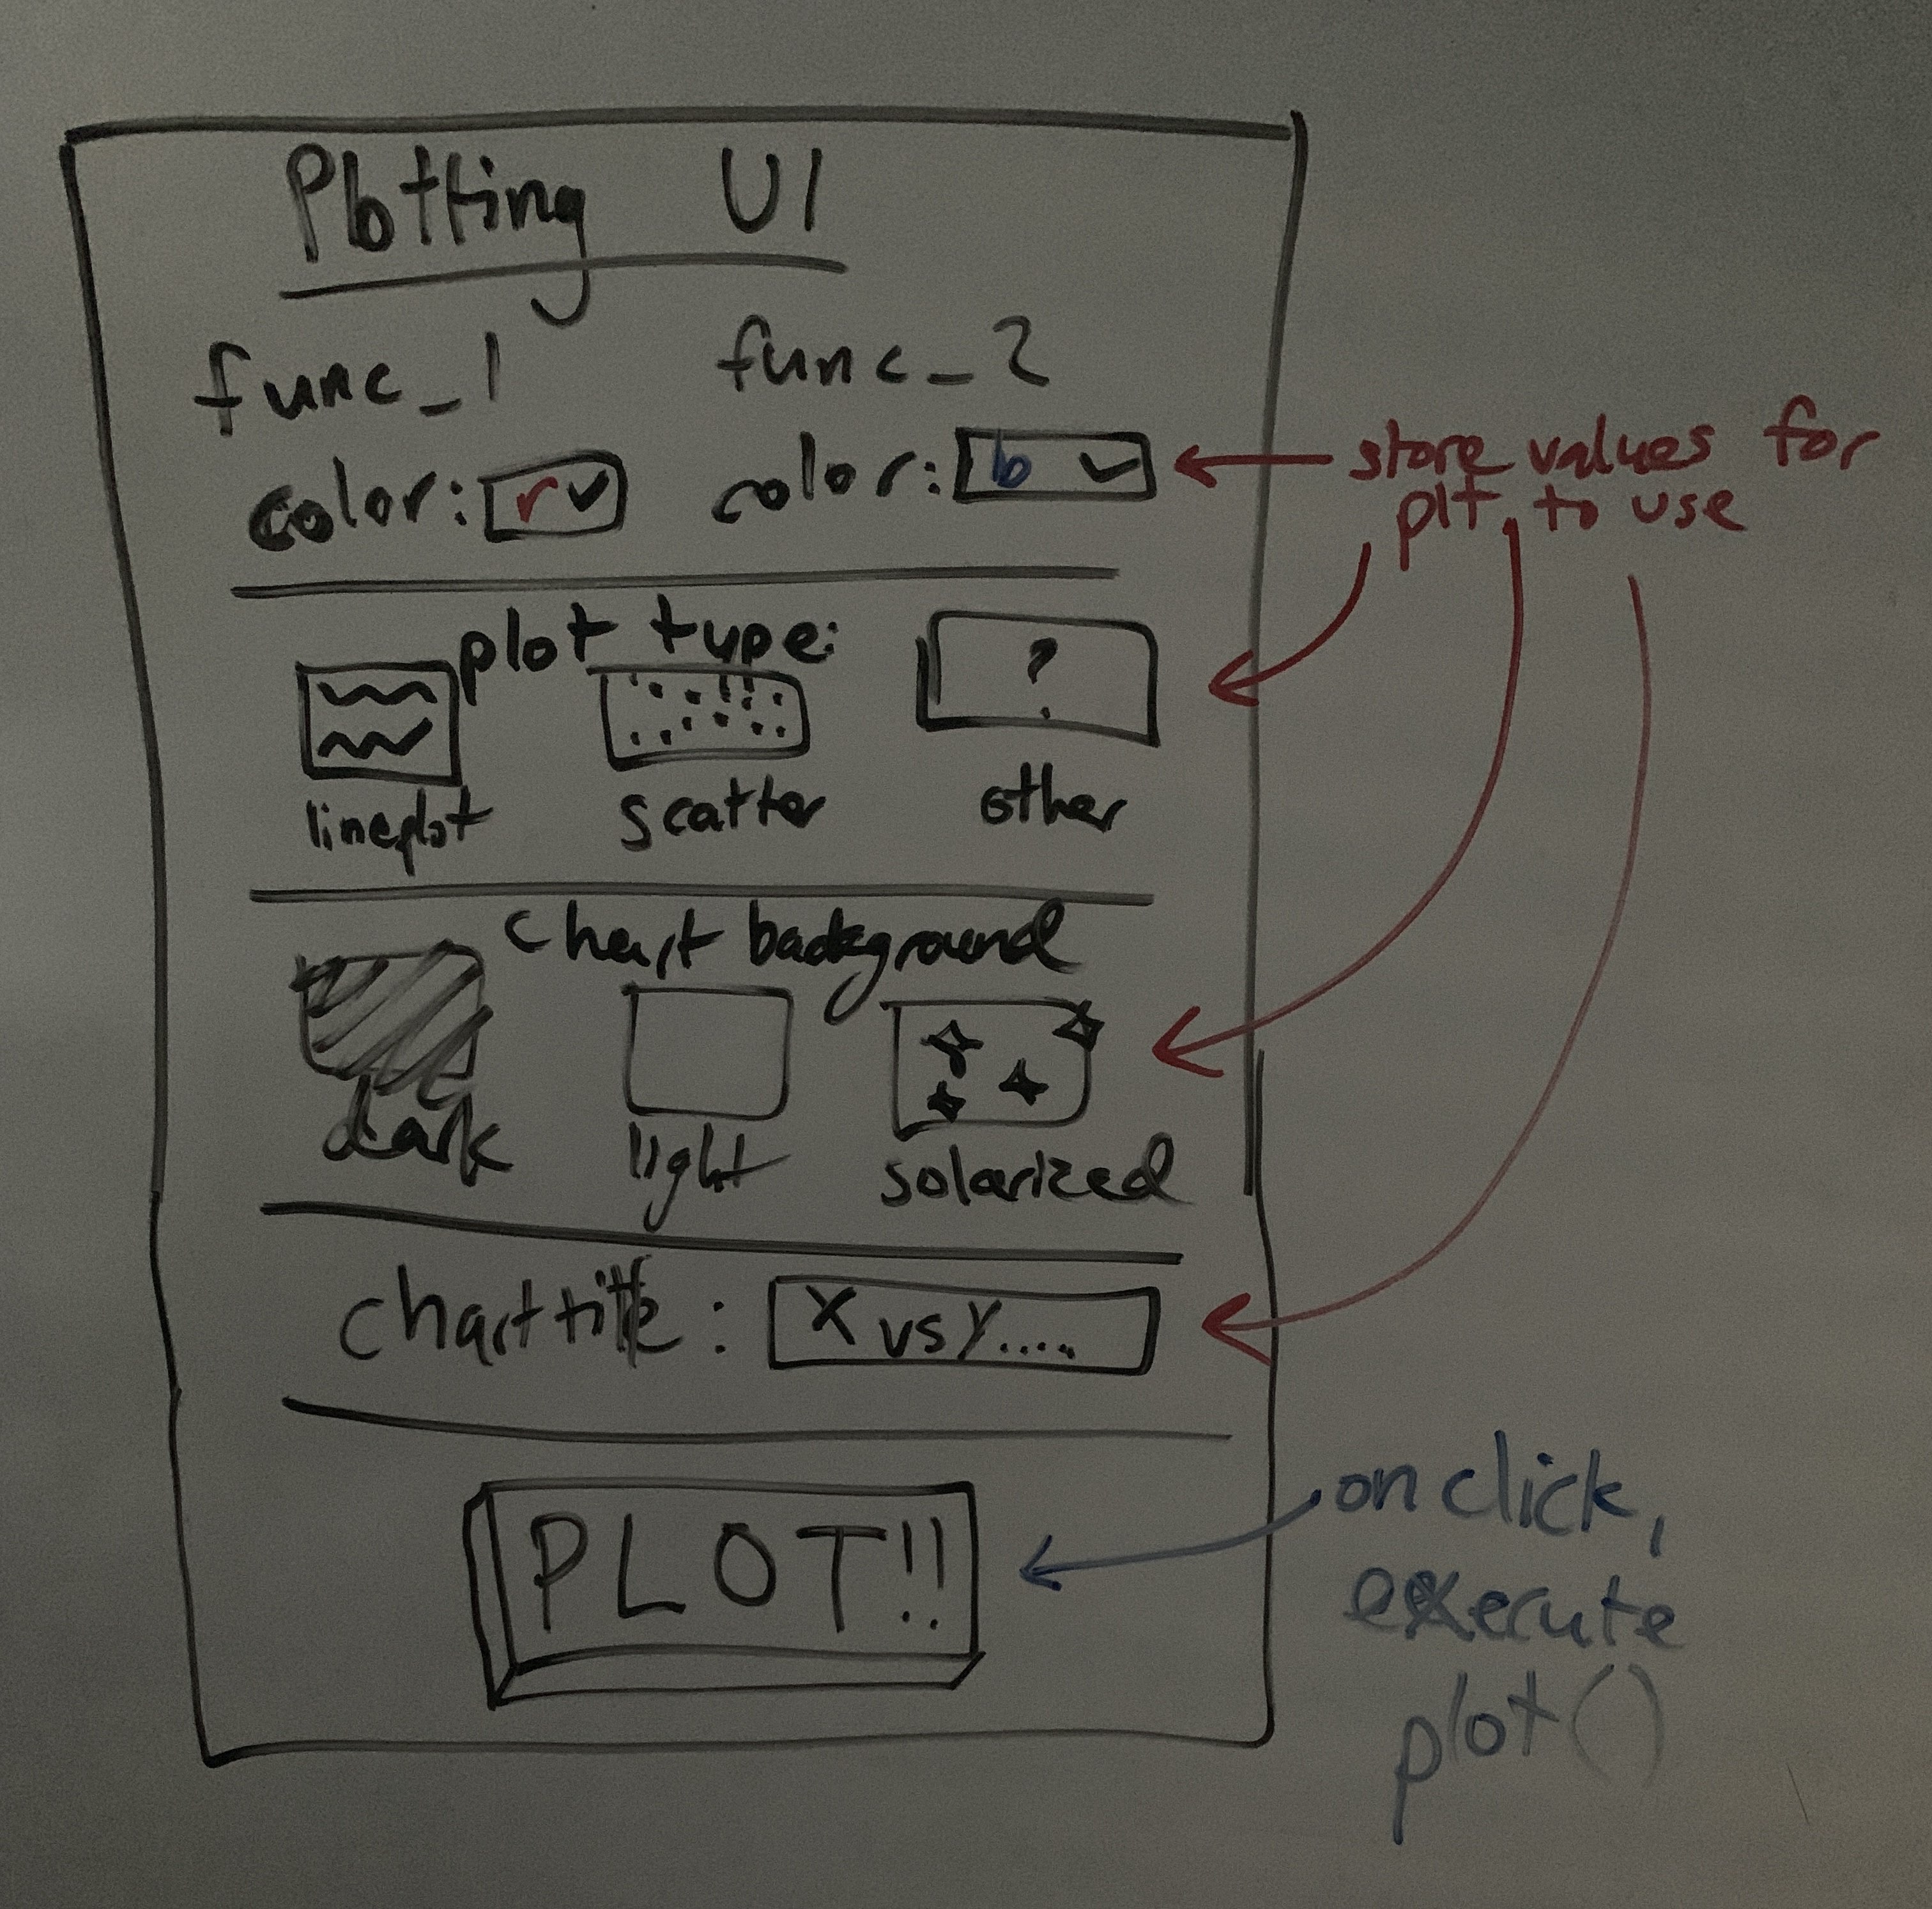 Plotting UI
func_1 func_2
color: r color: b
store values for
plt. to use
plot type:
?
lineplot scatter other
chart background
dark light solarized
chart title: X vs y....
PLOT!!
on click,
execute
plot()